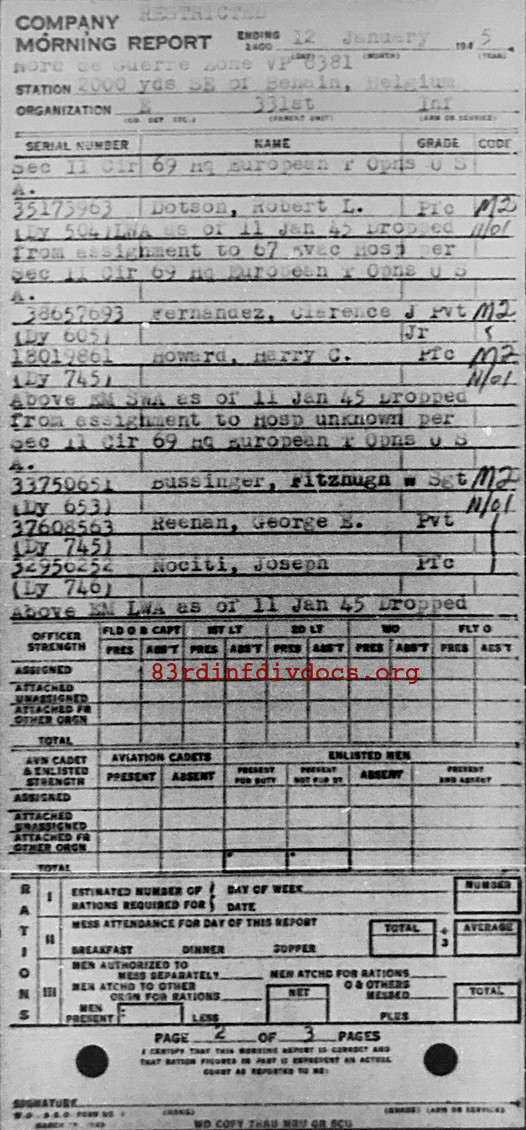 RESTRICTED
COMPANY
MORNING REPORT ENDING 2400 12 January 1945
(DAY) (MONTH) (YEAR)
Nord de Guerre Zone VP 8381
STATION 2000 yds SE of Bemain, Belgium
ORGANIZATION E 331st Inf
(CO. DET. ETC.) (PARENT UNIT) (ARM OR SERVICE)
SERIAL NUMBER NAME GRADE CODE
Sec II Cir 69 Hq European T Opns U S
A.
35173963 Dotson, Robert L. Pfc M2
(Dy 504)LWA as of 11 Jan 45 Dropped N/01
from assignment to 67 Evac Hosp per
Sec II Cir 69 Hq European T Opns U S
A.
38657693 Fernandez, Clarence J Pvt M2
(Dy 605) Jr
18019861 Howard, Harry C. Pfc M2
(Dy 745) N/01
Above EM SWA as of 11 Jan 45 Dropped
from assignment to Hosp unknown per
Sec II Cir 69 Hq European T Opns U S
A.
33750651 Bussinger, Fitzhugh W Sgt M2
(Dy 653) N/01
37608563 Reenan, George E. Pvt
(Dy 745)
32956252 Nociti, Joseph Pfc
(Dy 746)
Above EM LWA as of 11 Jan 45 Dropped
OFFICER STRENGTH FLD O & CAPT 1ST LT 2D LT WO FLT O
PRES ABS'T PRES ABS'T PRES ABS'T PRES ABS'T PRES ABS'T
ASSIGNED
83rdinfdivdocs.org
ATTACHED UNASSIGNED
ATTACHED FR OTHER ORGN
TOTAL
AVN CADET & ENLISTED STRENGTH AVIATION CADETS ENLISTED MEN
PRESENT ABSENT PRESENT FOR DUTY PRESENT NOT FOR DY ABSENT PRESENT AND ABSENT
ASSIGNED
ATTACHED UNASSIGNED
ATTACHED FR OTHER ORGN
TOTAL
RATIONS
I ESTIMATED NUMBER OF DAY OF WEEK NUMBER
RATIONS REQUIRED FOR DATE
II MESS ATTENDANCE FOR DAY OF THIS REPORT TOTAL ÷ 3 AVERAGE
BREAKFAST DINNER SUPPER
III MEN AUTHORIZED TO MESS SEPARATELY MEN ATCHD FOR RATIONS
MEN ATCHD TO OTHER ORGN FOR RATIONS NET & OTHERS MESSED TOTAL
MEN PRESENT LESS PLUS
PAGE 2 OF 3 PAGES
I CERTIFY THAT THIS MORNING REPORT IS CORRECT AND
THAT RATION FIGURES IN PART III REPRESENT AN ACTUAL
COUNT AS REPORTED TO ME:
SIGNATURE
W.D., A.G.O. FORM NO. 1 (NAME) (GRADE) (ARM OR SERVICE)
WD COPY THRU MRU OR SCU